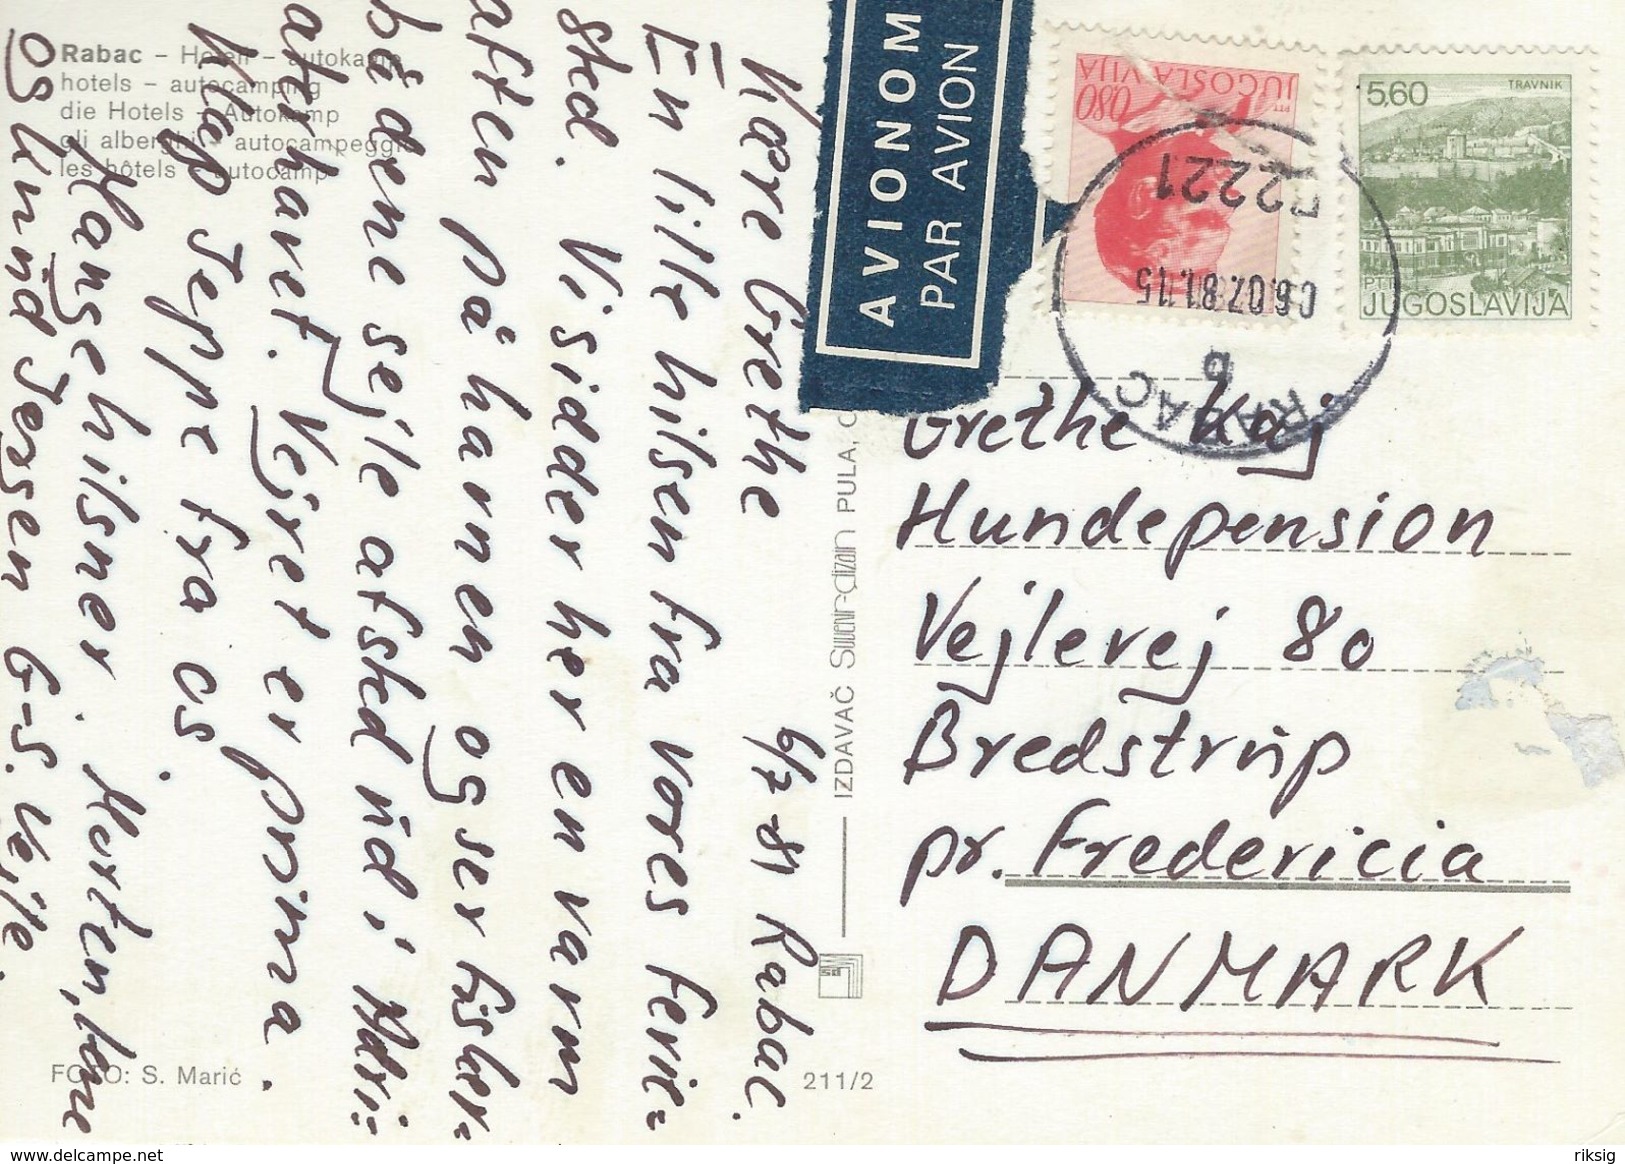 Rabac – Hoteli – autokamp
hotels – autocamping
die Hotels – Autokamp
gli alberghi – autocampeggio
les hôtels – autocamp
6/7-81 Rabac.
Kære Grethe
En lille hilsen fra vores ferie=
sted. Vi sidder her en varm
aften på havnen og ser fisker=
bådene sejle afsked ud i Adri=
aterhavet. Vejret er prima.
Klap Jeppe fra os.
Mange hilsner. Morten, Lone
og Knud Jessen G-S. Vejle.
FOTO: S. Marić
IZDAVAČ Souvenir-dizajn PULA,
211/2
AVIONOM
PAR AVION
PTT 0,80
JUGOSLAVIJA
5,60
TRAVNIK
PTT
JUGOSLAVIJA
52221
06.07.81.15
b
RABAC
Grethe Kaj
Hundepension
Vejlevej 80
Bredstrup
pr. Fredericia
DANMARK
www.delcampe.net
riksig